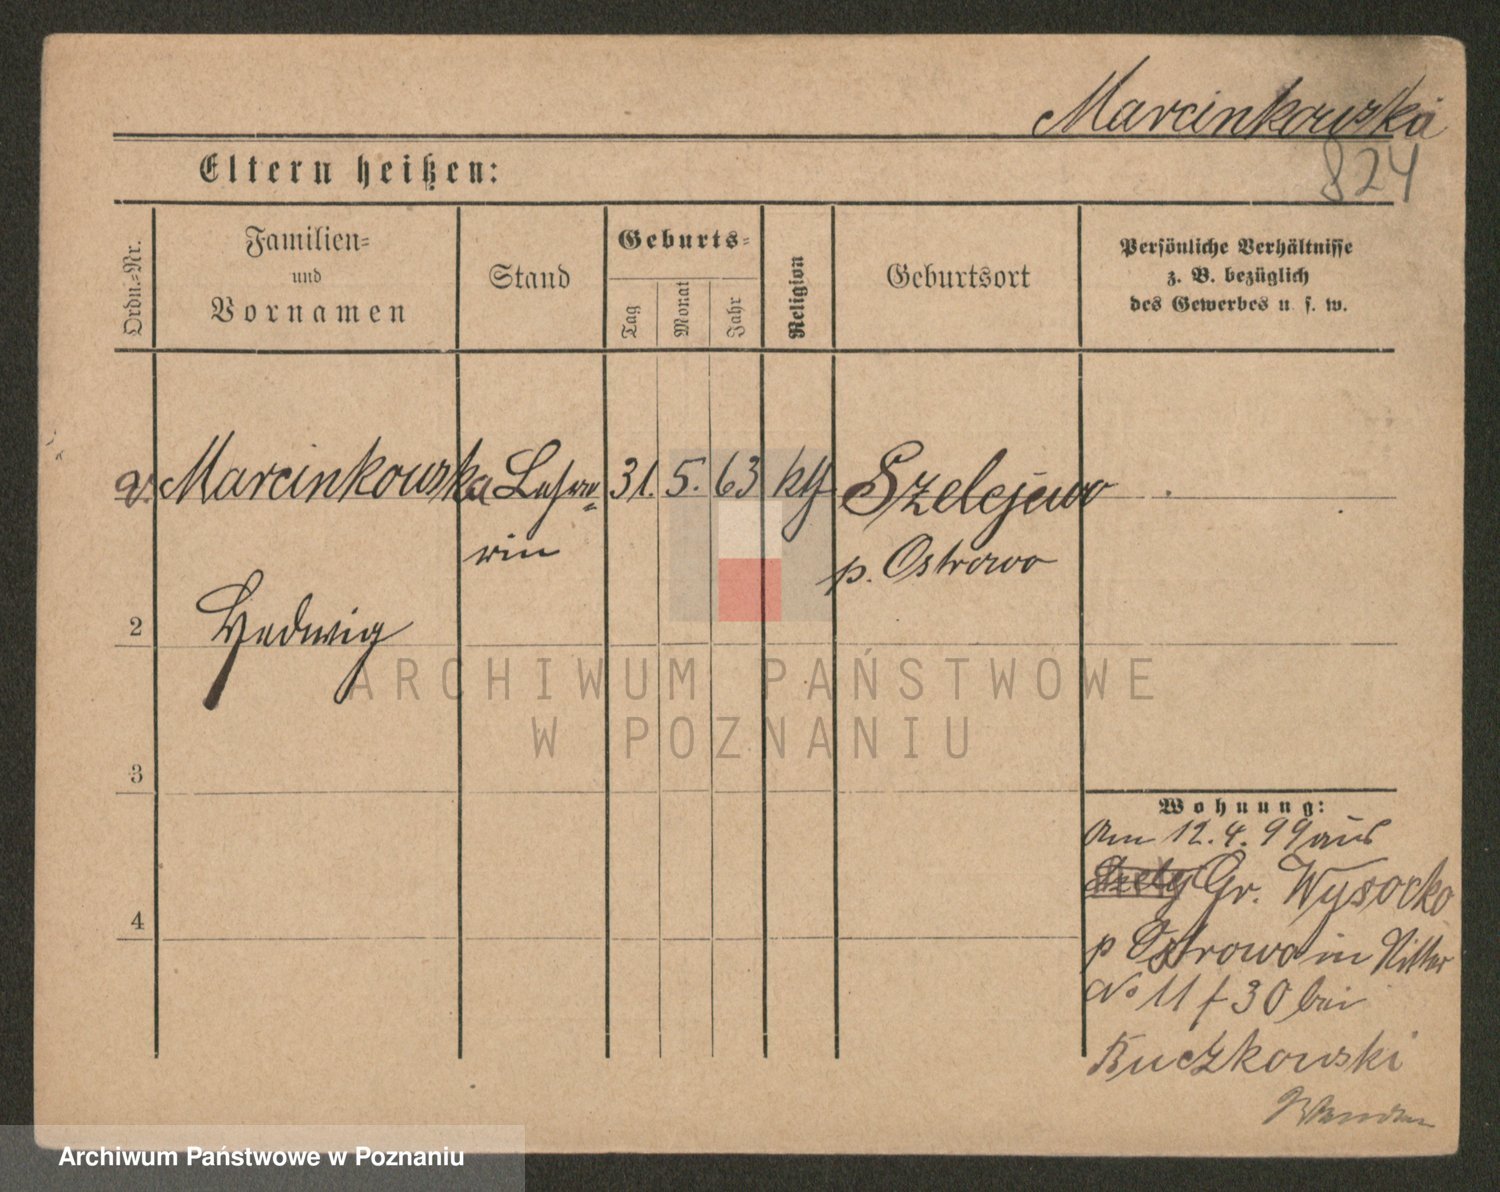 Marcinkowska
824
Eltern heißen:
Ordn.-Nr.
Familien-
und
Vornamen
Stand
Geburts-
Tag
Monat
Jahr
Religion
Geburtsort
Persönliche Verhältnisse
z. B. bezüglich
des Gewerbes u. s. w.
Marcinkowska Lehre- 31. 5. 63 kth Szelejewo
rin p. Ostrowo
2 Hedwig
3
4
Wohnung:
Am 12. 4. 99 aus
Gr. Wysocko
p Ostrowo in Ritter
No 11 f 30 bei
Buczkowski
ARCHIWUM PAŃSTWOWE
W POZNANIU
Archiwum Państwowe w Poznaniu